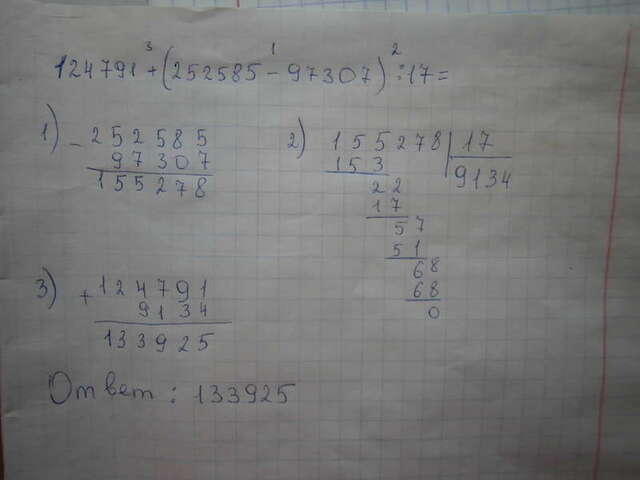 3 1 2
124791+(252585-97307):17=
1) -252585
97307
155278
2) 155278 17
153 9134
22
17
57
51
68
68
0
3) +124791
9134
133925
Ответ: 133925